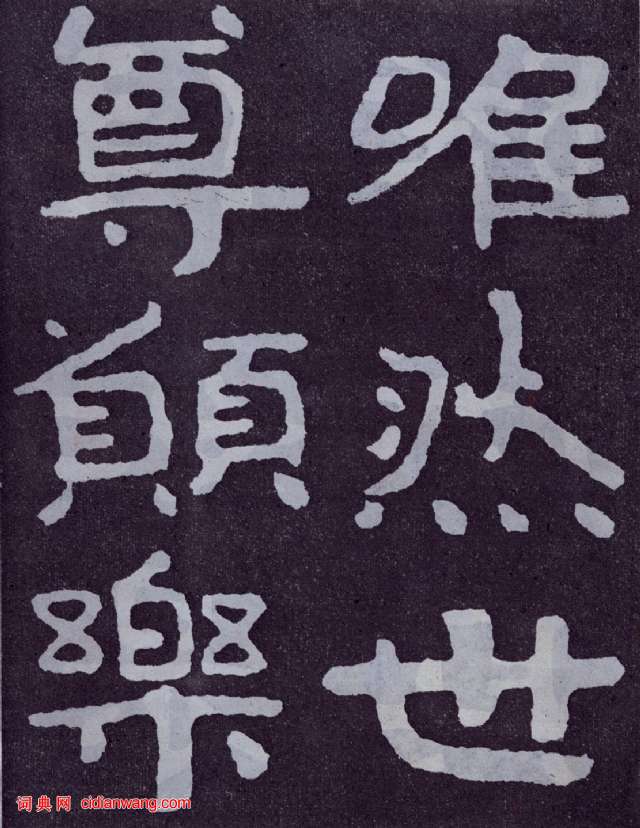 唯然世
尊願樂
词典网 cidianwang.com